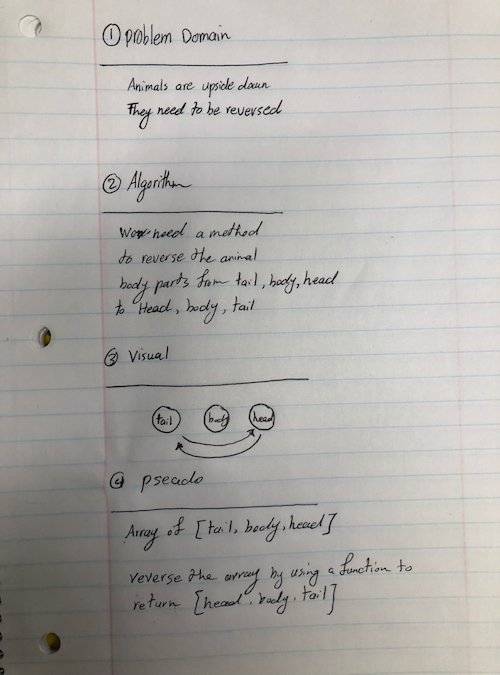 ① Problem Domain
Animals are upside down
They need to be reversed
② Algorithm
We need a method
to reverse the animal
body parts from tail, body, head
to Head, body, tail
③ Visual
tail body head
④ pseudo
Array of [tail, body, head]
reverse the array by using a function to
return [head, body, tail]